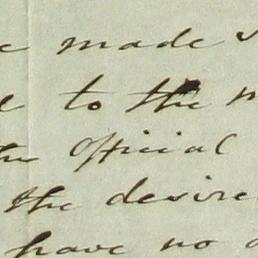 made
to the
the official
the desire
have no